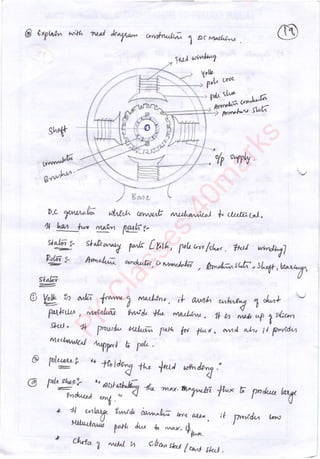 (19)
Ⓠ Explain with neat diagram construction of DC machine.
Field winding
Yoke
pole core
pole shoe
Armature conductor
Armature slots
Shaft
commutator
Brushes.
o/p supply
Base
D.C generator which converts mechanical to electrical.
It has two main parts :-
Stator :- Stationary parts [Yoke, pole core/shoe, field winding]
Rotor :- Armature conductor, commutator, Armature slots, shaft, bearings.
Stator
① Yoke is outer frame of machine, it avoids entering of dust
particles, moisture inside the machine. It is made up of silicon
steel. It provides reluctance path for flux, and also it provides
mechanical support to pole.
② pole core :- " Holding the field winding."
③ pole shoe :- " distributing the max. magnetic flux to produce large
induced emf."
it enlarge inside armature core area, it provides low
reluctance path due to max. flux
Choice of metal is silicon steel / cast steel.
Classes 40marks